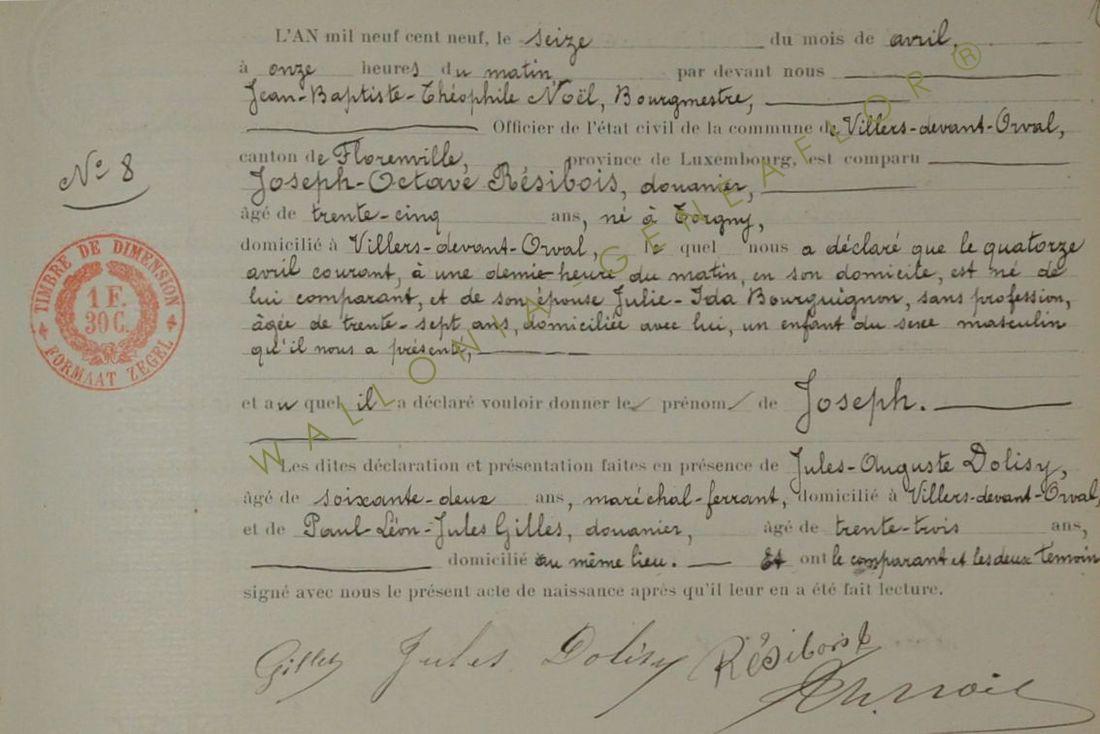 L'AN mil neuf cent neuf, le seize du mois de avril,
à onze heures du matin, par devant nous
Jean-Baptiste-Théophile Noël, Bourgmestre,
Officier de l'état civil de la commune de Villers-devant-Orval,
canton de Florenville, province de Luxembourg, est comparu
N° 8
Joseph-Octave Résibois, douanier,
âgé de trente-cinq ans, né à Torgny,
domicilié à Villers-devant-Orval, le quel nous a déclaré que le quatorze
avril courant, à une demie heure du matin, en son domicile, est né de
lui comparant, et de son épouse Julie-Ida Bourguignon, sans profession,
âgée de trente-sept ans, domiciliée avec lui, un enfant du sexe masculin
qu'il nous a présenté,
TIMBRE DE DIMENSION
1 F.
30 C.
FORMAAT ZEGEL
et au quel il a déclaré vouloir donner le prénom de Joseph.
Les dites déclaration et présentation faites en présence de Jules-Auguste Dolisy,
âgé de soixante-deux ans, maréchal-ferrant, domicilié à Villers-devant-Orval,
et de Paul-Léon-Jules Gilles, douanier, âgé de trente-trois ans,
domicilié au même lieu. Et ont le comparant et les deux temoin
signé avec nous le présent acte de naissance après qu'il leur en a été fait lecture.
Gilles Jules Dolisy Résibois
Th. Noël
WALLONIA-GENEAFLOR ®